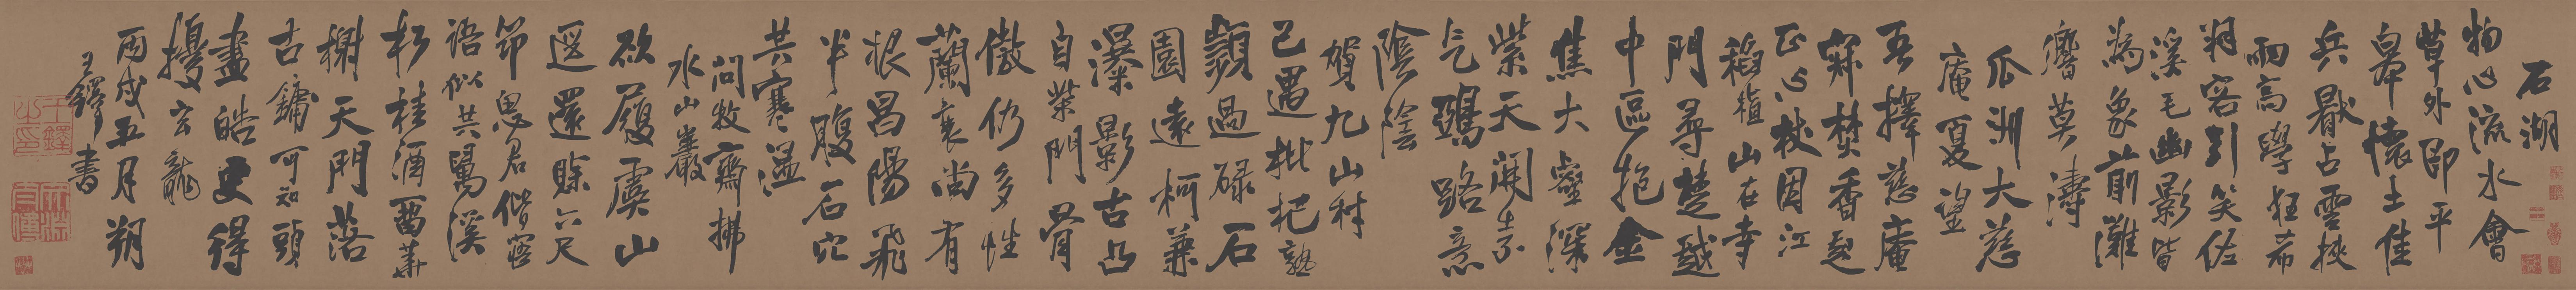 石湖
物心流水會
草外即平
皋懷土佳
兵厭占雲挾
雨高學狂希
糊容引笑佐
溪毛幽影皆
為象前灘
響莫濤
瓜洲大慈
庵夏望
吾擇慈庵
寐焚香起
正心杖固江
稻禎山在寺
門尋楚越
中區抱金
焦大壑深
紫天開素
氣鷗路意
陰陰
賀九山村
已過枇杷熟
顥過碌石
園遠柯兼
瀑影古凸
自柴門骨
傲仍多性
蘭衰尚有
根昌陽飛
半腹石穴
共寒溫
問牧齋拂
水山巖
欲履虞山
遐還賒六尺
節思君偕寤
語似共闖溪
杉桂酒酉華
榭天門落
古鏞可知頭
盡皓更得
擾玄龍
丙戌五月朔
王鐸書